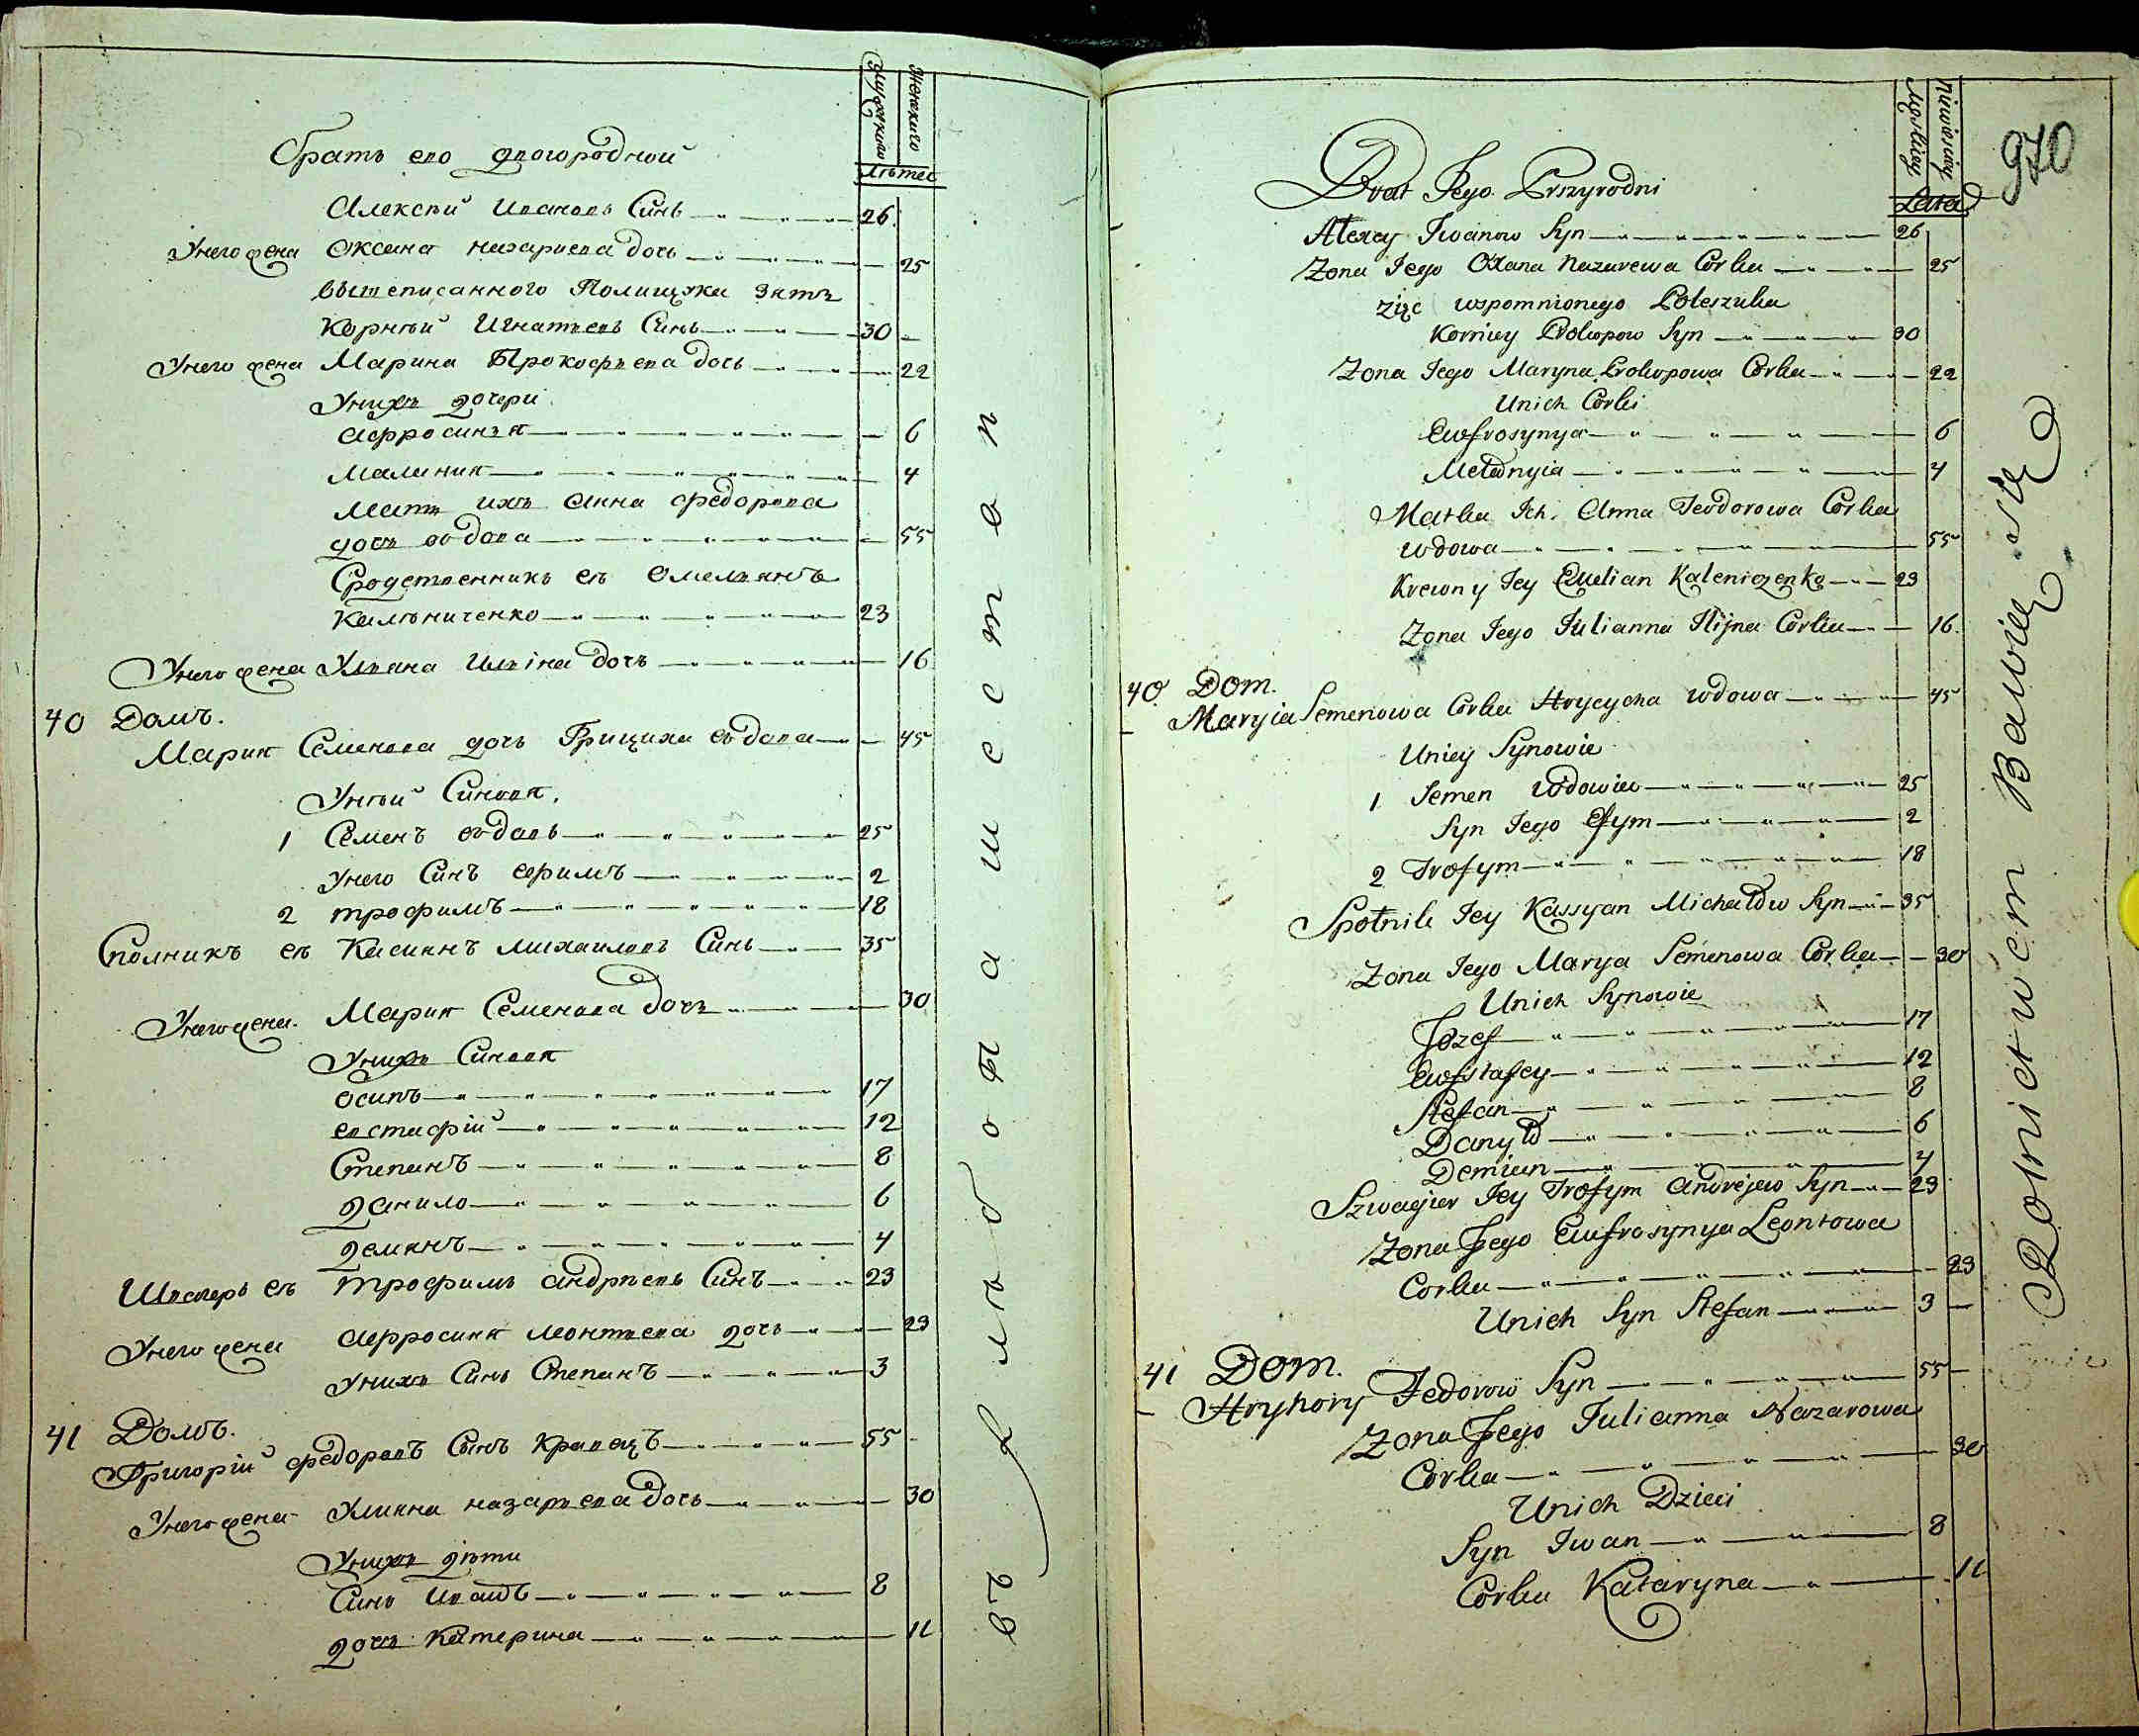 мужского
женского
лѣтес
Братъ его двоюродной
Алексѣй Ивановъ Синъ 26
Унего жена Оксана назариева дочъ 25
вышеписанного Полищука зять
Корнѣй Игнатьевъ Синъ 30
Унего жена Марина Прокофьева дочь 22
Унихъ дочери
Афросинья 6
Малания 4
Мать ихъ Анна федорова
дочъ вдова 55
Сродственникъ еѣ Омельянъ
Калѣниченко 23
Унего жена Уляна Ильина дочъ 16
40 Домъ.
Мария Семенова дочъ Грициха вдова 45
Унѣй Синовя.
1 Семенъ вдовъ 25
унего Синъ ефимъ 2
2 трофимъ 18
Сполникъ еѣ Касиянъ михаиловъ Синъ 35
Унего жена. Мария Семенова дочъ 30
Унихъ Синовя
осипъ 17
евстафій 12
Степанъ 8
данило 6
демянъ 4
Швагеръ еѣ трофимъ андрѣевъ Синъ 23
Унего жена афросиня леонтьева дочъ 23
унихъ Синъ Степанъ 3
41 Домъ.
Григорій федоровъ Синъ кравецъ 55
Унего жена Улияна назарьева дочъ 30
Унихъ дѣти
Синъ Иванъ 8
дочъ катерина 11
въ хлѣбопашества
Męskiey
Niewieściey
Lata
970
Brat Jego Przyrodni
Alexey Iwanow Syn 26
Zona Jego Oxana Nazarewa Corka 25
zięć wspomnionego Poleszuka
Korniey Prokopow Syn 30
Zona Jego Maryna Prokopowa Corka 22
Unich Corki
Ewfrosynya 6
Mełanyia 4
Matka Ich. Anna Teodorowa Corka
wdowa 55
Krewny Jey Emelian Kaleniczenko 23
Zona Jego Julianna Ilijna Corka 16.
40 Dom.
Maryia Semenowa Corka Hrycycha wdowa 45
Uniey Synowie
1 Semen Wdowiec 25
Syn Jego Efym 2
2 Trofym 18
Spolnik Jey Kassyan Michałow Syn 35
Zona Jego Marya Semenowa Corka 30
Unich Synowie
Jozef 17
Ewfstafey 12
Stefan 8
Danyło 6
Demian 4
Szwagier Jey Trofym Andrejew Syn 23
Zona Jego Ewfrosynya Leontowa
Corka 23
Unich Syn Stefan 3
41 Dom.
Hryhory Fedorow Syn 55
Zona Jego Julianna Nazarowa
Corka 30
Unich Dzieci
Syn Iwan 8
Corka Kataryna 11
Rolnictwem Bawiec się